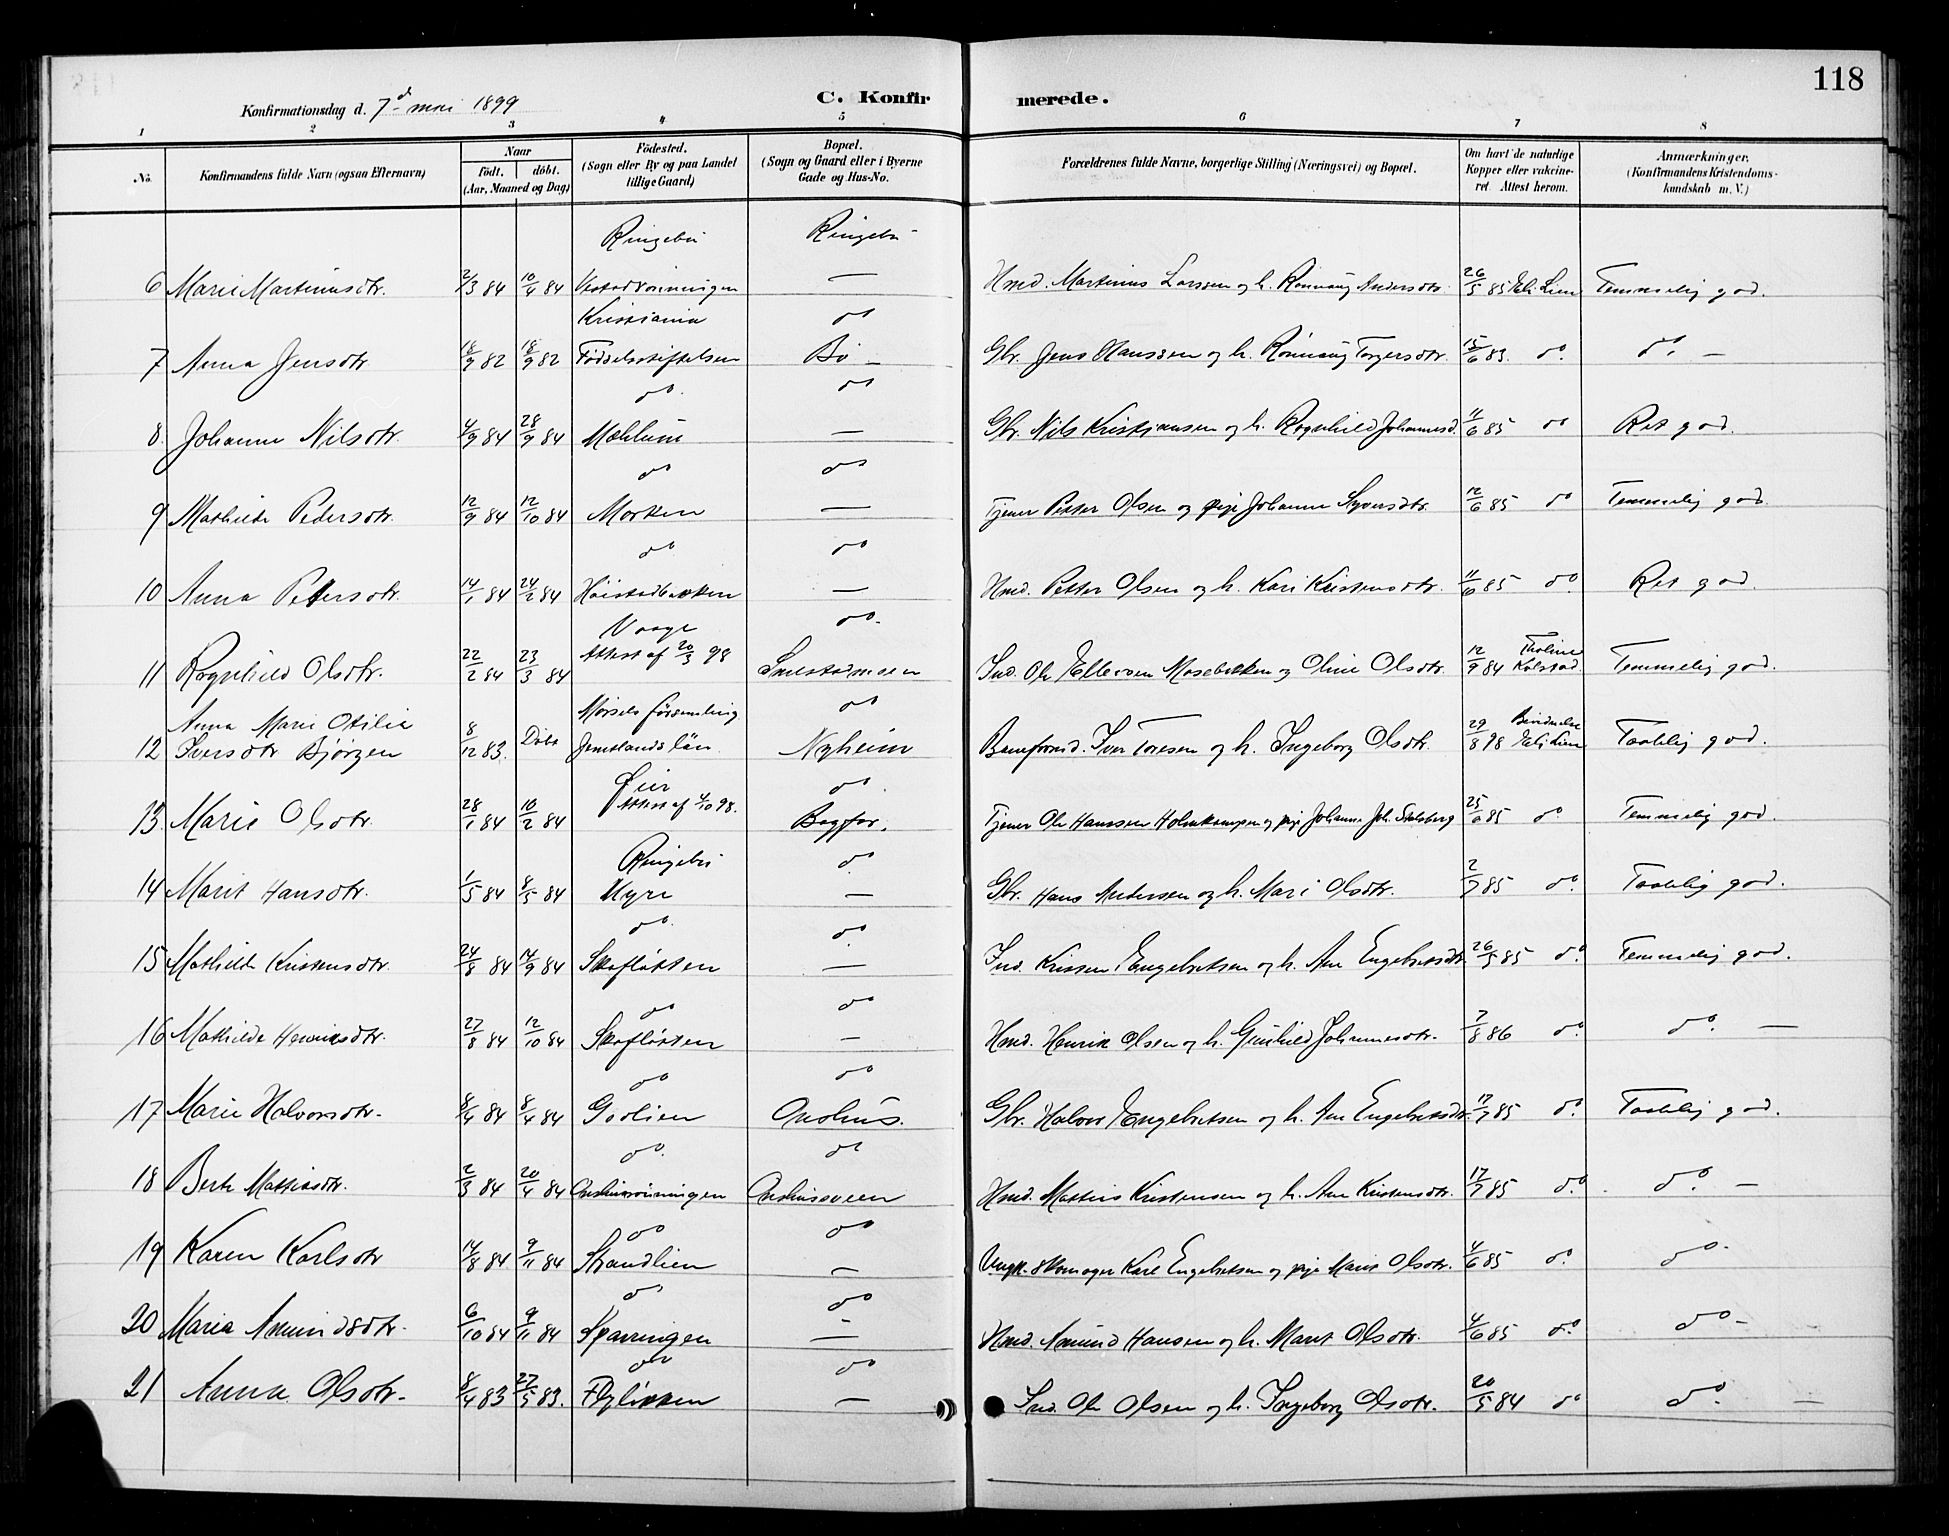 118
Konfirmationsdag d. 7de mai 1899
C. Konfirmerede.
1 2 3 4 5 6 7 8
No.
Konfirmandens fulde Navn (ogsaa Efternavn)
Naar
født. døbt.
(Aar, Maaned og Dag)
Fødested.
(Sogn eller By og paa Landet
tillige Gaard)
Bopæl.
(Sogn og Gaard eller i Byerne
Gade og Hus-No.
Forældrenes fulde Navne, borgerlige Stilling (Næringsvei) og Bopæl.
Om havt de naturlige
Kopper eller vakcine-
ret. Attest herom.
Anmærkninger.
(Konfirmandens Kristendoms-
kundskab m. V.)
Ringebu Ringebu
6 Marie Martinusdtr. 2/3 84 10/4 84 — Hmd. Martinus Larssen og h. Rønnaug Andersdtr. 26/5 85 Eli Lien Temmelig god.
Kristiania do
7 Anna Jensdtr. 18/9 82 18/9 82 Fødselsstiftelsen Bø — Gbr. Jens Hanssen og h. Rønnaug Torgersdtr. 15/6 83. do. do. —
do. do
8. Johanne Nilsdtr. 4/9 84 28/9 84 Mæhlum — Gbr. Nils Kristiansen og h. Ragnhild Johannesd. 11/6 85 do Ret god.
do do
9 Mathilde Pedersdtr. 12/9 84 12/10 84 Morken — Tjener Petter Olsen og pige Johanne Syversdtr. 12/6 85 do Temmelig god.
do do
10 Anna Pettersdtr. 14/1 84 24/2 84 Høistadbakken — Hmd. Petter Olsen og h. Kari Kristensdtr. 11/6 85 do. Ret god.
Vaage do.
11 Ragnhild Olsdtr. 22/2 84 23/3 84 Attest af 20/3 98 Ind. Ole Ellevsen Mosebakken og Oline Olsdtr. 12/9 84 Tholine Kolstad. Temmelig god.
Anna Marie Otilia Mørsels församling do
12 Iversdtr Bjørgen 8/12 83. Døbt Jemtlands län. Nyheim Baneformd. Iver Toresen og h. Ingeborg Olsdtr. 29/8 98 Eli Lien Taalelig god.
Øier do.
13. Marie Olsdtr. 28/1 84 10/2 84 Attest af 4/10 98. Tjener Ole Hanssen Holmkampen og pige Johanne Joh. 25/6 85 do Temmelig god.
Ringebu do.
14 Marit Hansdtr. 1/5 84 8/5 84 Myre — Gbr. Hans Andersen og h. Mari Olsdtr. 2/7 85 do. Taalelig god.
do. do.
15 Mathilde Kristensdtr. 24/8 84 14/9 84 Skofløtten — Ind. Kristen Engebretsen og h. Ane Engebretsdtr. 26/5 85 do. Temmelig god.
do do
16 Mathilde Henriksdtr. 27/8 84 12/10 84 Skofløtten — Hmd. Henrik Olsen og h. Gunhild Johannesdtr. 7/8 86 do. do. —
do do
17 Marie Halvorsdtr. 8/4 84 8/4 84 Godlien Onshus. Gbr. Halvor Engebretsen og h. Ane Engebretsdtr. 17/7 85 do. Taalelig god.
do. do
18 Berte Mattiasdtr. 2/3 84 20/4 84 Onshusrønningen Onshussveen Hmd. Mattias Kristensen og h. Ane Kristensdtr. 17/7 85 do. do. —
do do
19 Karen Karlsdtr 14/8 84 9/11 84 Strandlien — Ungk. skomager Karl Engebretsen og pige Marit Olsdtr. 4/6 85 do. do.
do do
20 Maria Amundsdtr. 6/10 84 9/11 84 Sparringen — Hmd. Amund Hansen og h. Marit Olsdtr. 4/6 85 do. do —
do do
21 Anna Olsdtr. 8/4 83 27/5 83. — Ind. Ole Olsen og h. Ingeborg Olsdtr. 20/5 84 do do. —